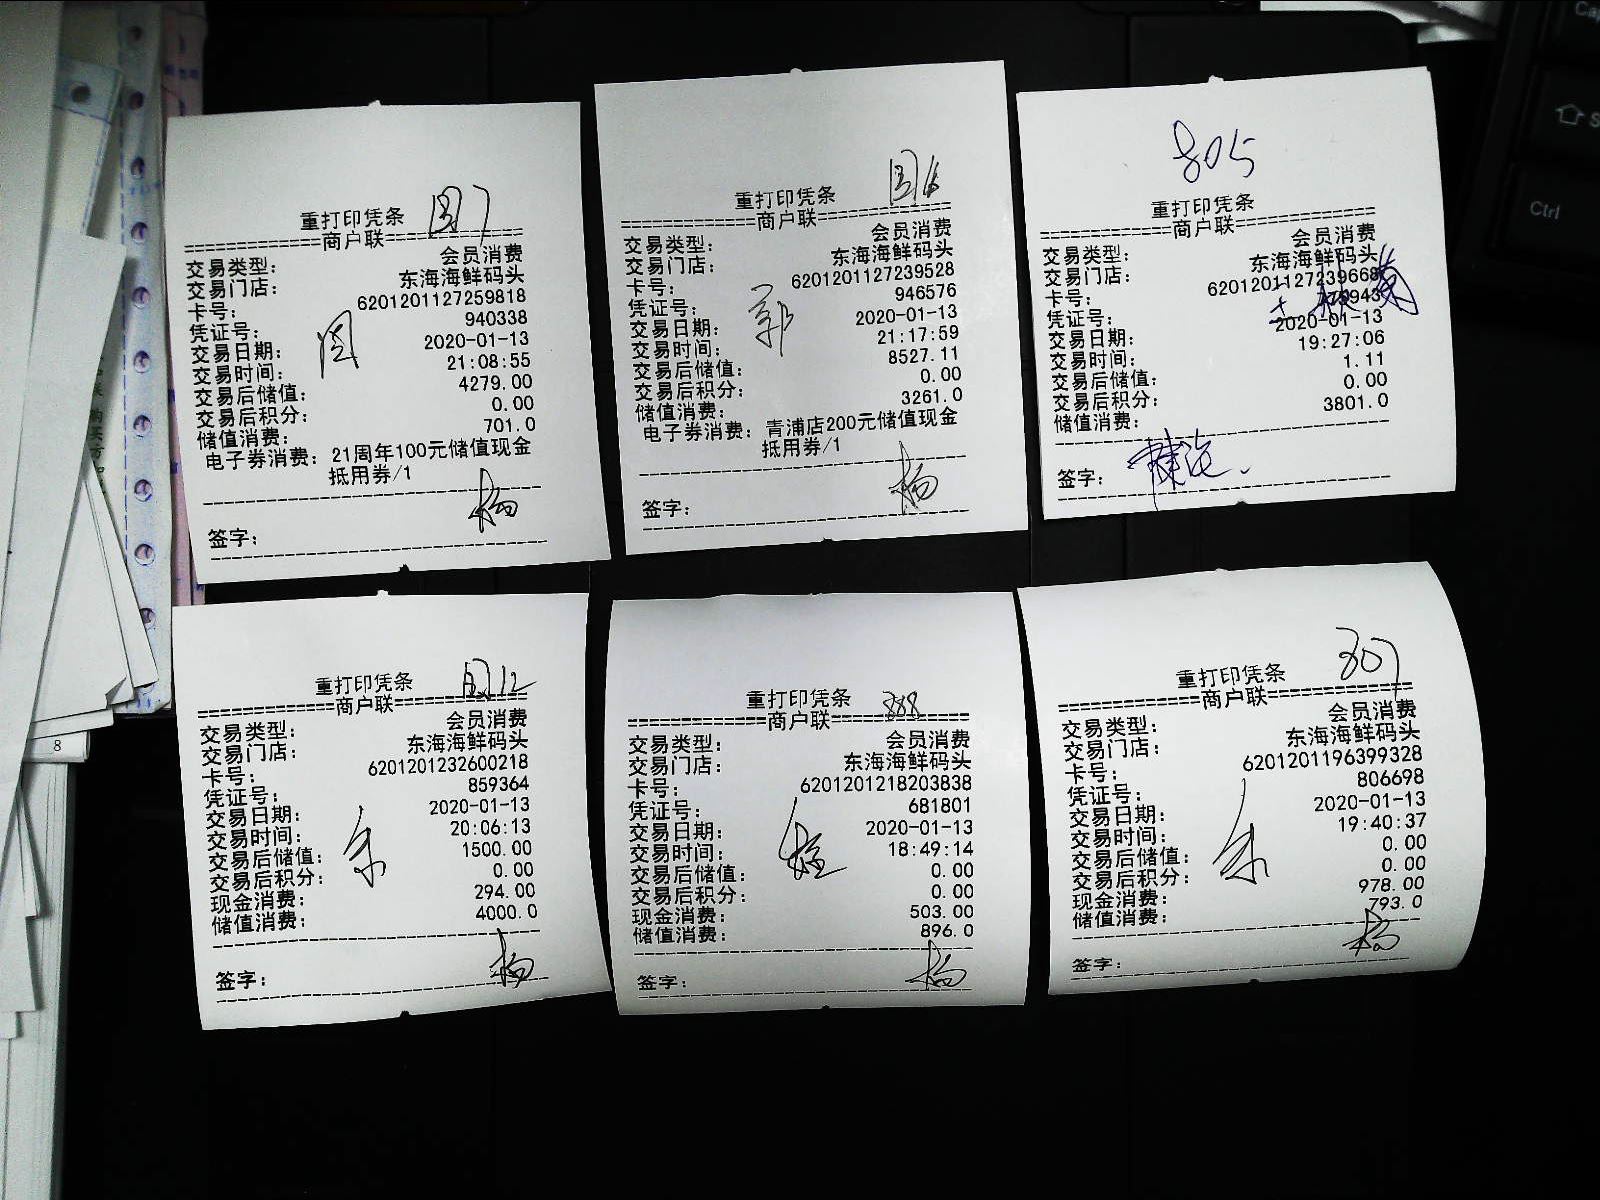 重打印凭条 图7
==========商户联==========
交易类型: 会员消费
交易门店: 东海海鲜码头
卡号: 6201201127259818
凭证号: 940338
交易日期: 2020-01-13
交易时间: 21:08:55
交易后储值: 4279.00
交易后积分: 0.00
储值消费: 701.0
电子券消费: 21周年100元储值现金
抵用券/1
杨
签字:
重打印凭条
==========商户联==========
交易类型: 会员消费
交易门店: 东海海鲜码头
卡号: 6201201127239528
凭证号: 946576
交易日期: 2020-01-13
交易时间: 21:17:59
交易后储值: 8527.11
交易后积分: 0.00
储值消费: 3261.0
电子券消费: 青浦店200元储值现金
抵用券/1
郭
杨
签字:
805
重打印凭条
==========商户联==========
交易类型: 会员消费
交易门店: 东海海鲜码头
卡号: 6201201127239668
凭证号:
交易日期: 2020-01-13
交易时间: 19:27:06
交易后储值: 1.11
交易后积分: 0.00
储值消费: 3801.0
签字:
重打印凭条
==========商户联==========
交易类型: 会员消费
交易门店: 东海海鲜码头
卡号: 6201201232600218
凭证号: 859364
交易日期: 2020-01-13
交易时间: 20:06:13
交易后储值: 1500.00
交易后积分: 0.00
现金消费: 294.00
储值消费: 4000.0
朱
杨
签字:
重打印凭条 888
==========商户联==========
交易类型: 会员消费
交易门店: 东海海鲜码头
卡号: 6201201218203838
凭证号: 681801
交易日期: 2020-01-13
交易时间: 18:49:14
交易后储值: 0.00
交易后积分: 0.00
现金消费: 503.00
储值消费: 896.0
杨
签字:
重打印凭条 807
==========商户联==========
交易类型: 会员消费
交易门店: 东海海鲜码头
卡号: 6201201196399328
凭证号: 806698
交易日期: 2020-01-13
交易时间: 19:40:37
交易后储值: 0.00
交易后积分: 0.00
现金消费: 978.00
储值消费: 793.0
朱
杨
签字:
Ctrl
8